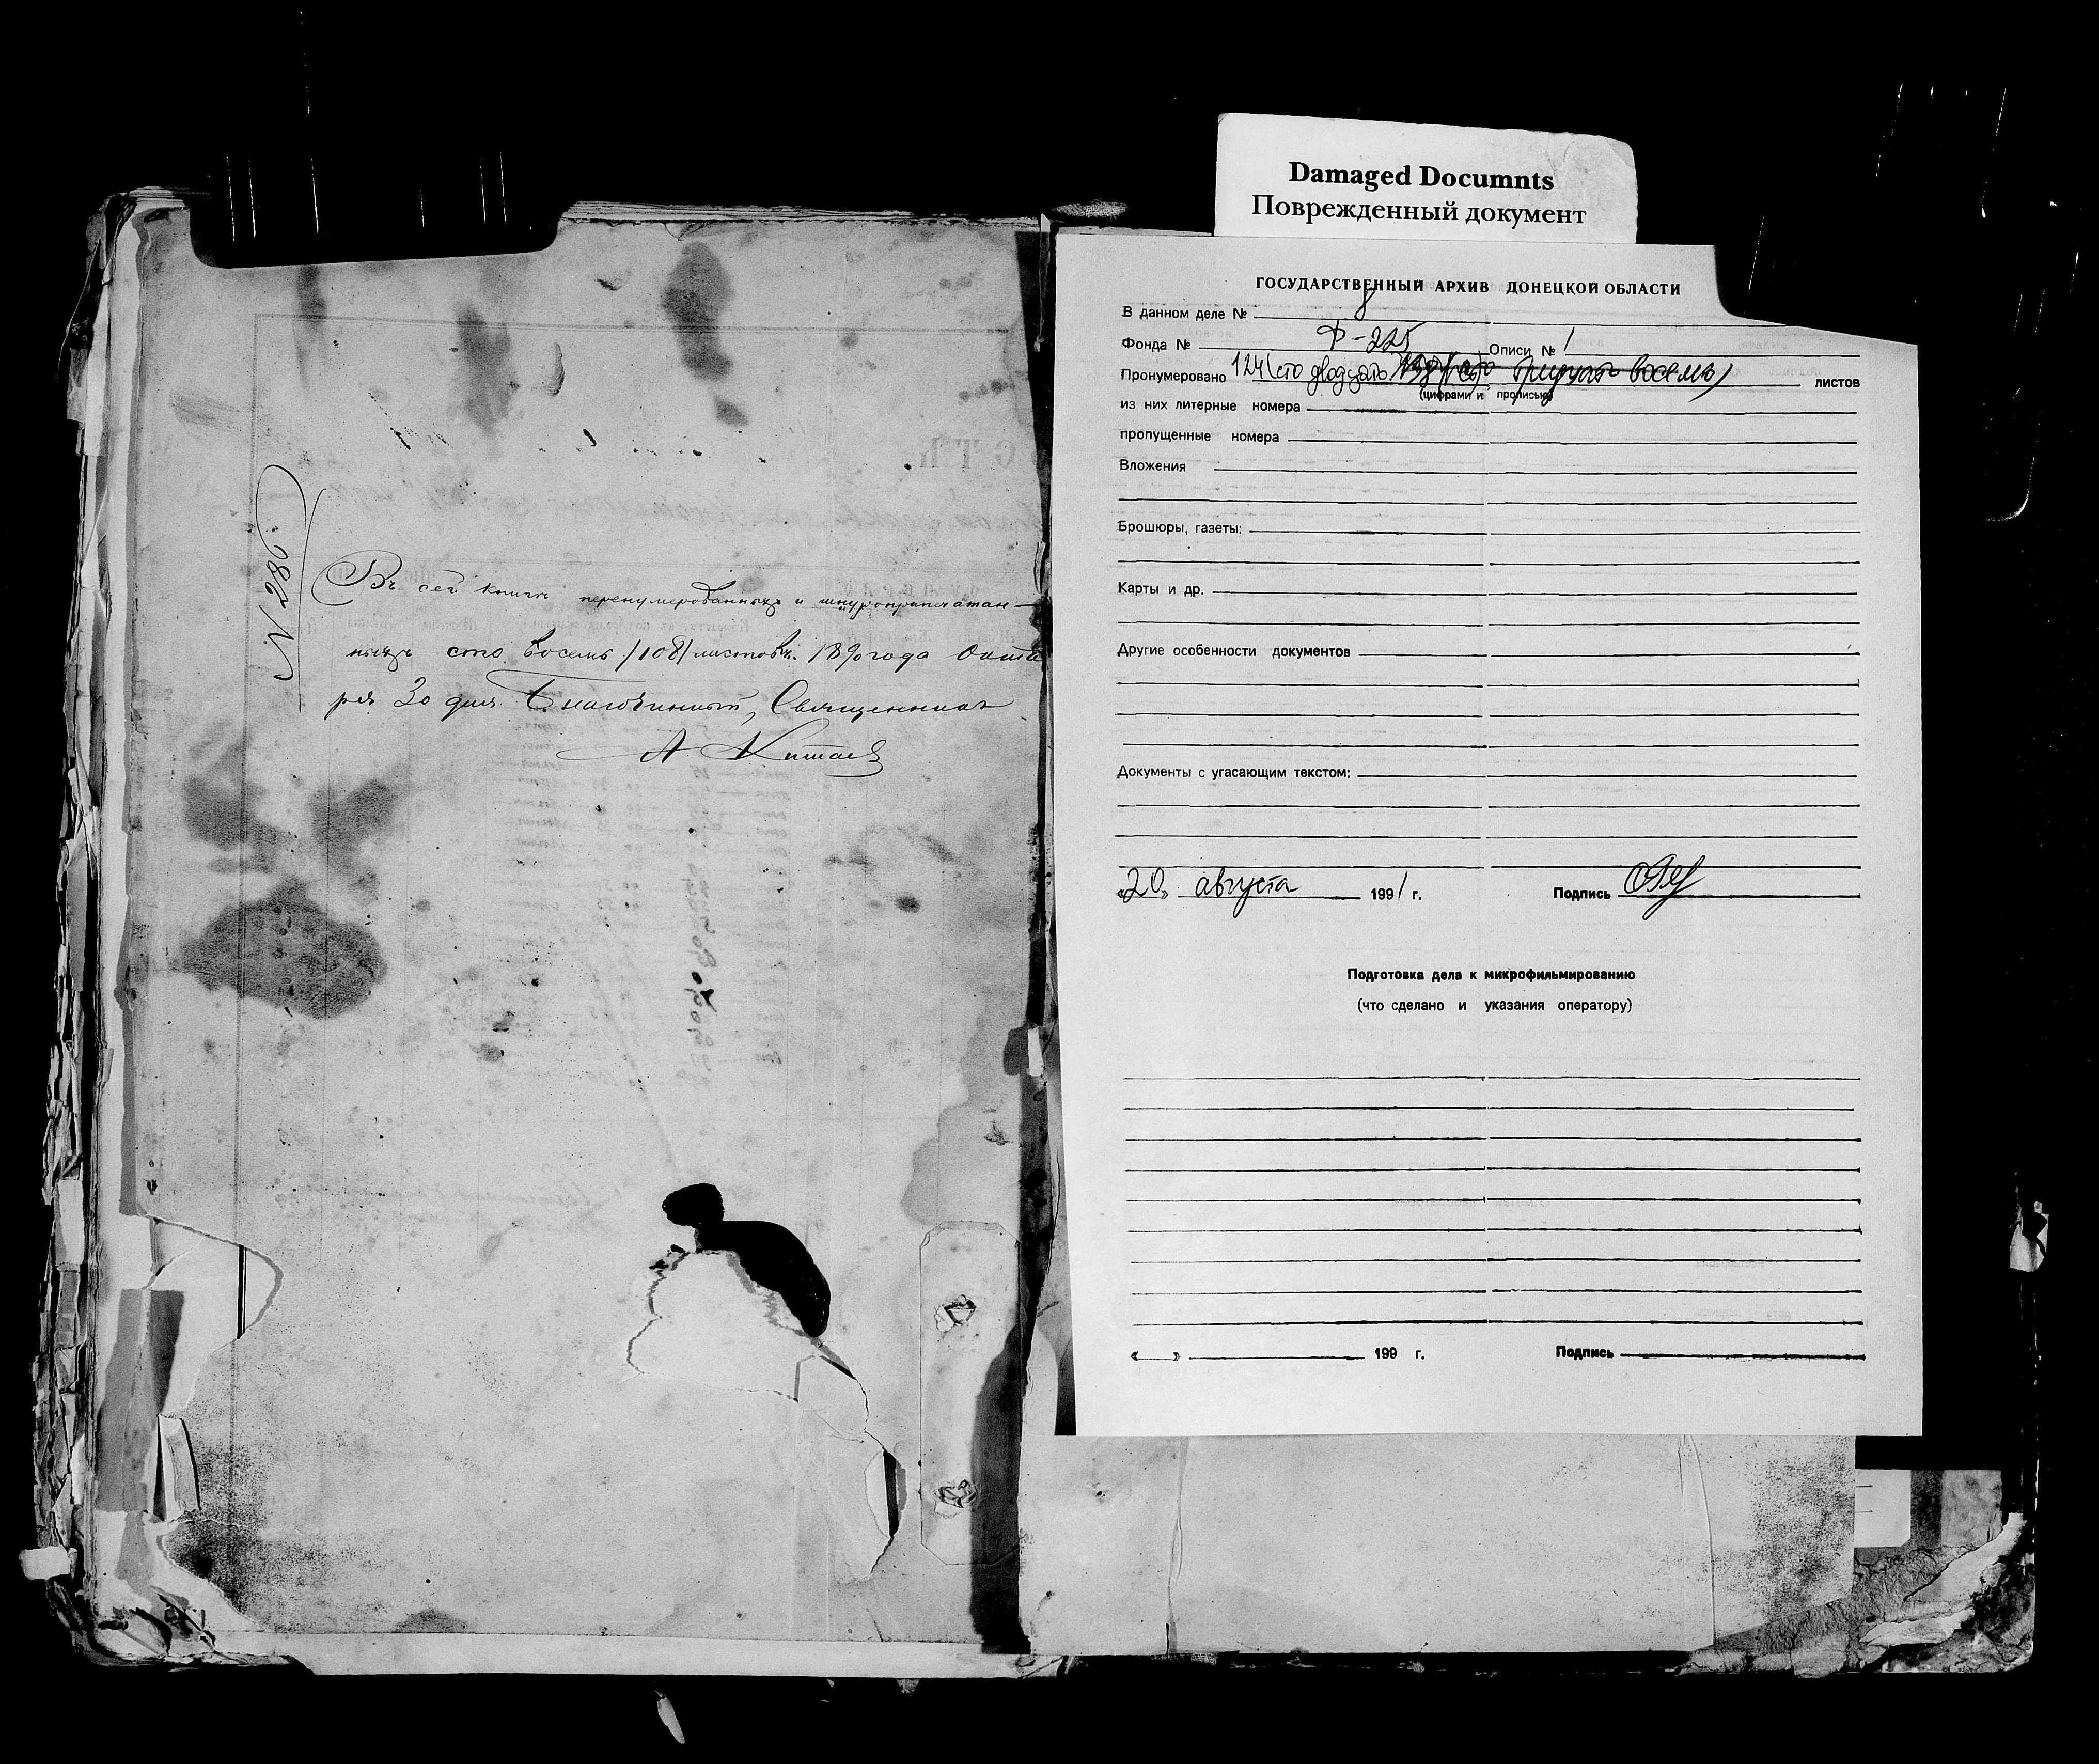 Damaged Documnts
Поврежденный документ
№ 286.
Въ сей книгѣ перенумерованныхъ и шнуроприпечатан-
ныхъ сто восемь /108/ листовъ. 1890 года Октяб
ря 30 дня. Благочинный, Священникъ
А. Китаев
ГОСУДАРСТВЕННЫЙ АРХИВ ДОНЕЦКОЙ ОБЛАСТИ
В данном деле № 8
Фонда № Ф-225 Описи № 1
Пронумеровано 124 (сто двадцать 138 (сто тридцать восемь) листов
(цифрами и прописью)
из них литерные номера
пропущенные номера
Вложения
Брошюры, газеты:
Карты и др.
Другие особенности документов
Документы с угасающим текстом:
«20» августа 1991 г. Подпись
Подготовка дела к микрофильмированию
(что сделано и указания оператору)
« » 199 г. Подпись